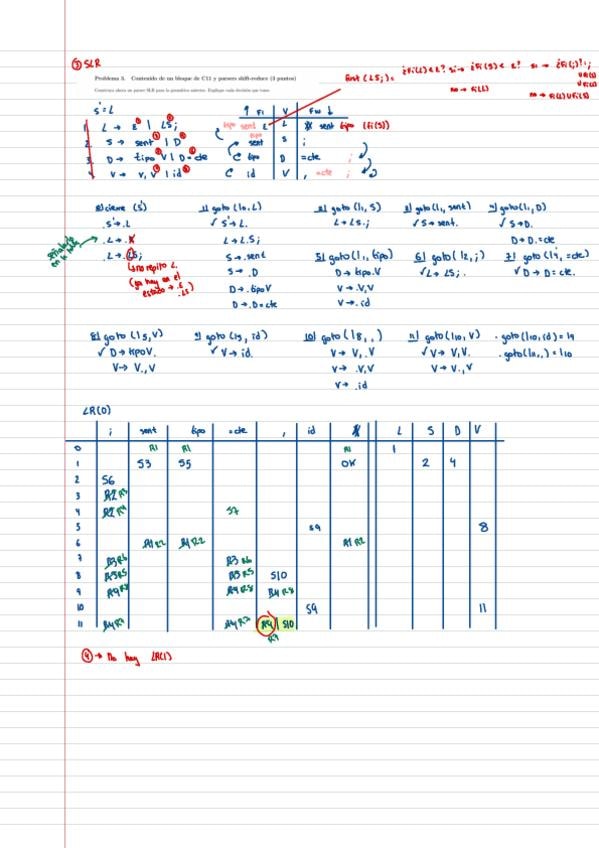 ③ SLR
Problema 3. Contenido de un bloque de C11 y parsers shift-reduce (3 puntos)
Construya ahora un parser SLR para la gramática anterior. Explique cada decisión que tome.
First (LS;) = ¿Fi(L) ε ε? si → ¿Fi(S) ε ε? si → ¿Fi(;)?
no → Fi(L)
no → Fi(L) U Fi(S)
S' = L
1 L → ε | LS;
2 S → sent | D
3 D → tipo V | D =cte
4 V → V,V | id
↑ Fi V Fw ↓
tipo sent ε L $ sent tipo (Fi(S))
tipo sent S ;
C tipo D =cte ;
C id V , =cte ;
0| cierre (S') 1| goto (I0, L) 2| goto (I1, S) 3| goto (I1, sent) 4| goto (I1, D)
S' → .L ✓ S' → L. L → LS.; ✓ S → sent. ✓ S → D.
L → . L → L.S; D → D.=cte
L → .LS; S → .sent 5| goto (I1, tipo) 6| goto (I2, ;) 7| goto (I4, =cte)
no repito L S → .D D → tipo.V ✓ L → LS;. ✓ D → D=cte.
(ya hay en el D → .tipo V V → .V,V
estado → .ε D → .D=cte V → .id
.LS)
8| goto (I5, V) 9| goto (I5, id) 10| goto (I8, ,) 11| goto (I10, V) · goto (I10, id) = I9
✓ D → tipo V. ✓ V → id. V → V,.V ✓ V → V,V. · goto (I11, ,) = I10
V → V.,V V → .V,V V → V.,V
V → .id
LR(0)
; sent tipo =cte , id $ L S D V
0 R1 R1 R1 1
1 S3 S5 OK 2 4
2 S6
3 R2 R3
4 R2 R4 S7
5 S9 8
6 R1 R2 R1 R2 R1 R2
7 R3 R6 R3 R6
8 R3 R5 R3 R5 S10
9 R4 R8 R4 R8 R4 R8
10 S9 11
11 R4 R7 R4 R7 R4 | S10
R7
④ → No hay LR(1)